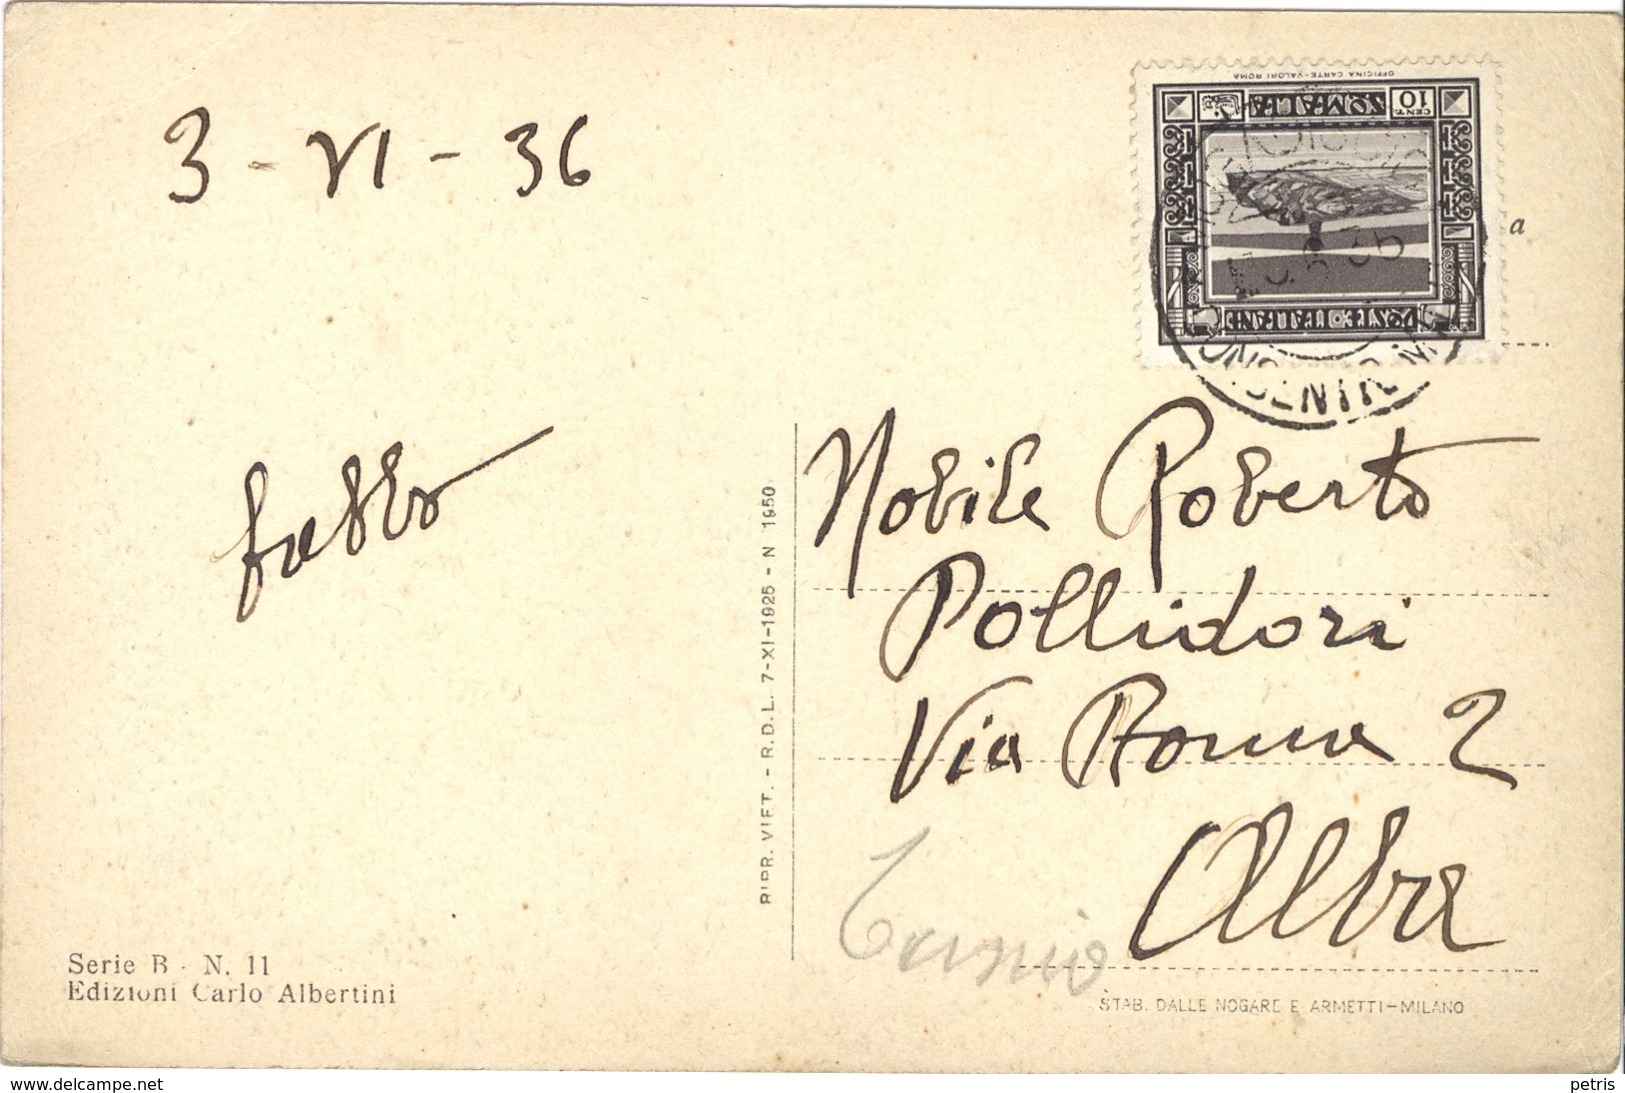 3 - VI - 36
OFFICINA CARTE-VALORI ROMA
CENT. 10 SOMALIA
POSTE ITALIANE
a
Nobile Roberto
Pollidori
Via Roma 2
Alba
RIPR. VIET. - R.D.L. 7-XI-1925 - N 1950
Serie B - N. 11
Edizioni Carlo Albertini
STAB. DALLE NOGARE E ARMETTI-MILANO
www.delcampe.net
petris